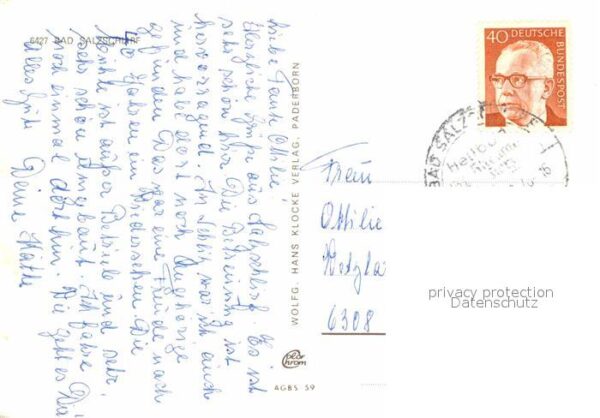 6427 BAD SALZSCHLIRF
Liebe Tante Ottilie!
Herzliche Grüße aus Salzschlirf. Es ist
sehr schön hier. Die Betreuung ist
hervorragend. In war ich auch
und habe dort noch Angehörige
gefunden. Das war eine Freude nach
40 Jahren ein Wiedersehen. Die
ist außer Betrieb und sehr,
sehr schön umgebaut. Ich fahre
noch einmal dorthin. Wie geht es Dir
Alles Gute Deine
WOLFG. HANS KLOCKE VERLAG, PADERBORN
40 DEUTSCHE
BUNDESPOST
BAD SALZ
Frau
Ottilie
Wetzla
6308
privacy protection
Datenschutz
color
chrom
AGBS 59